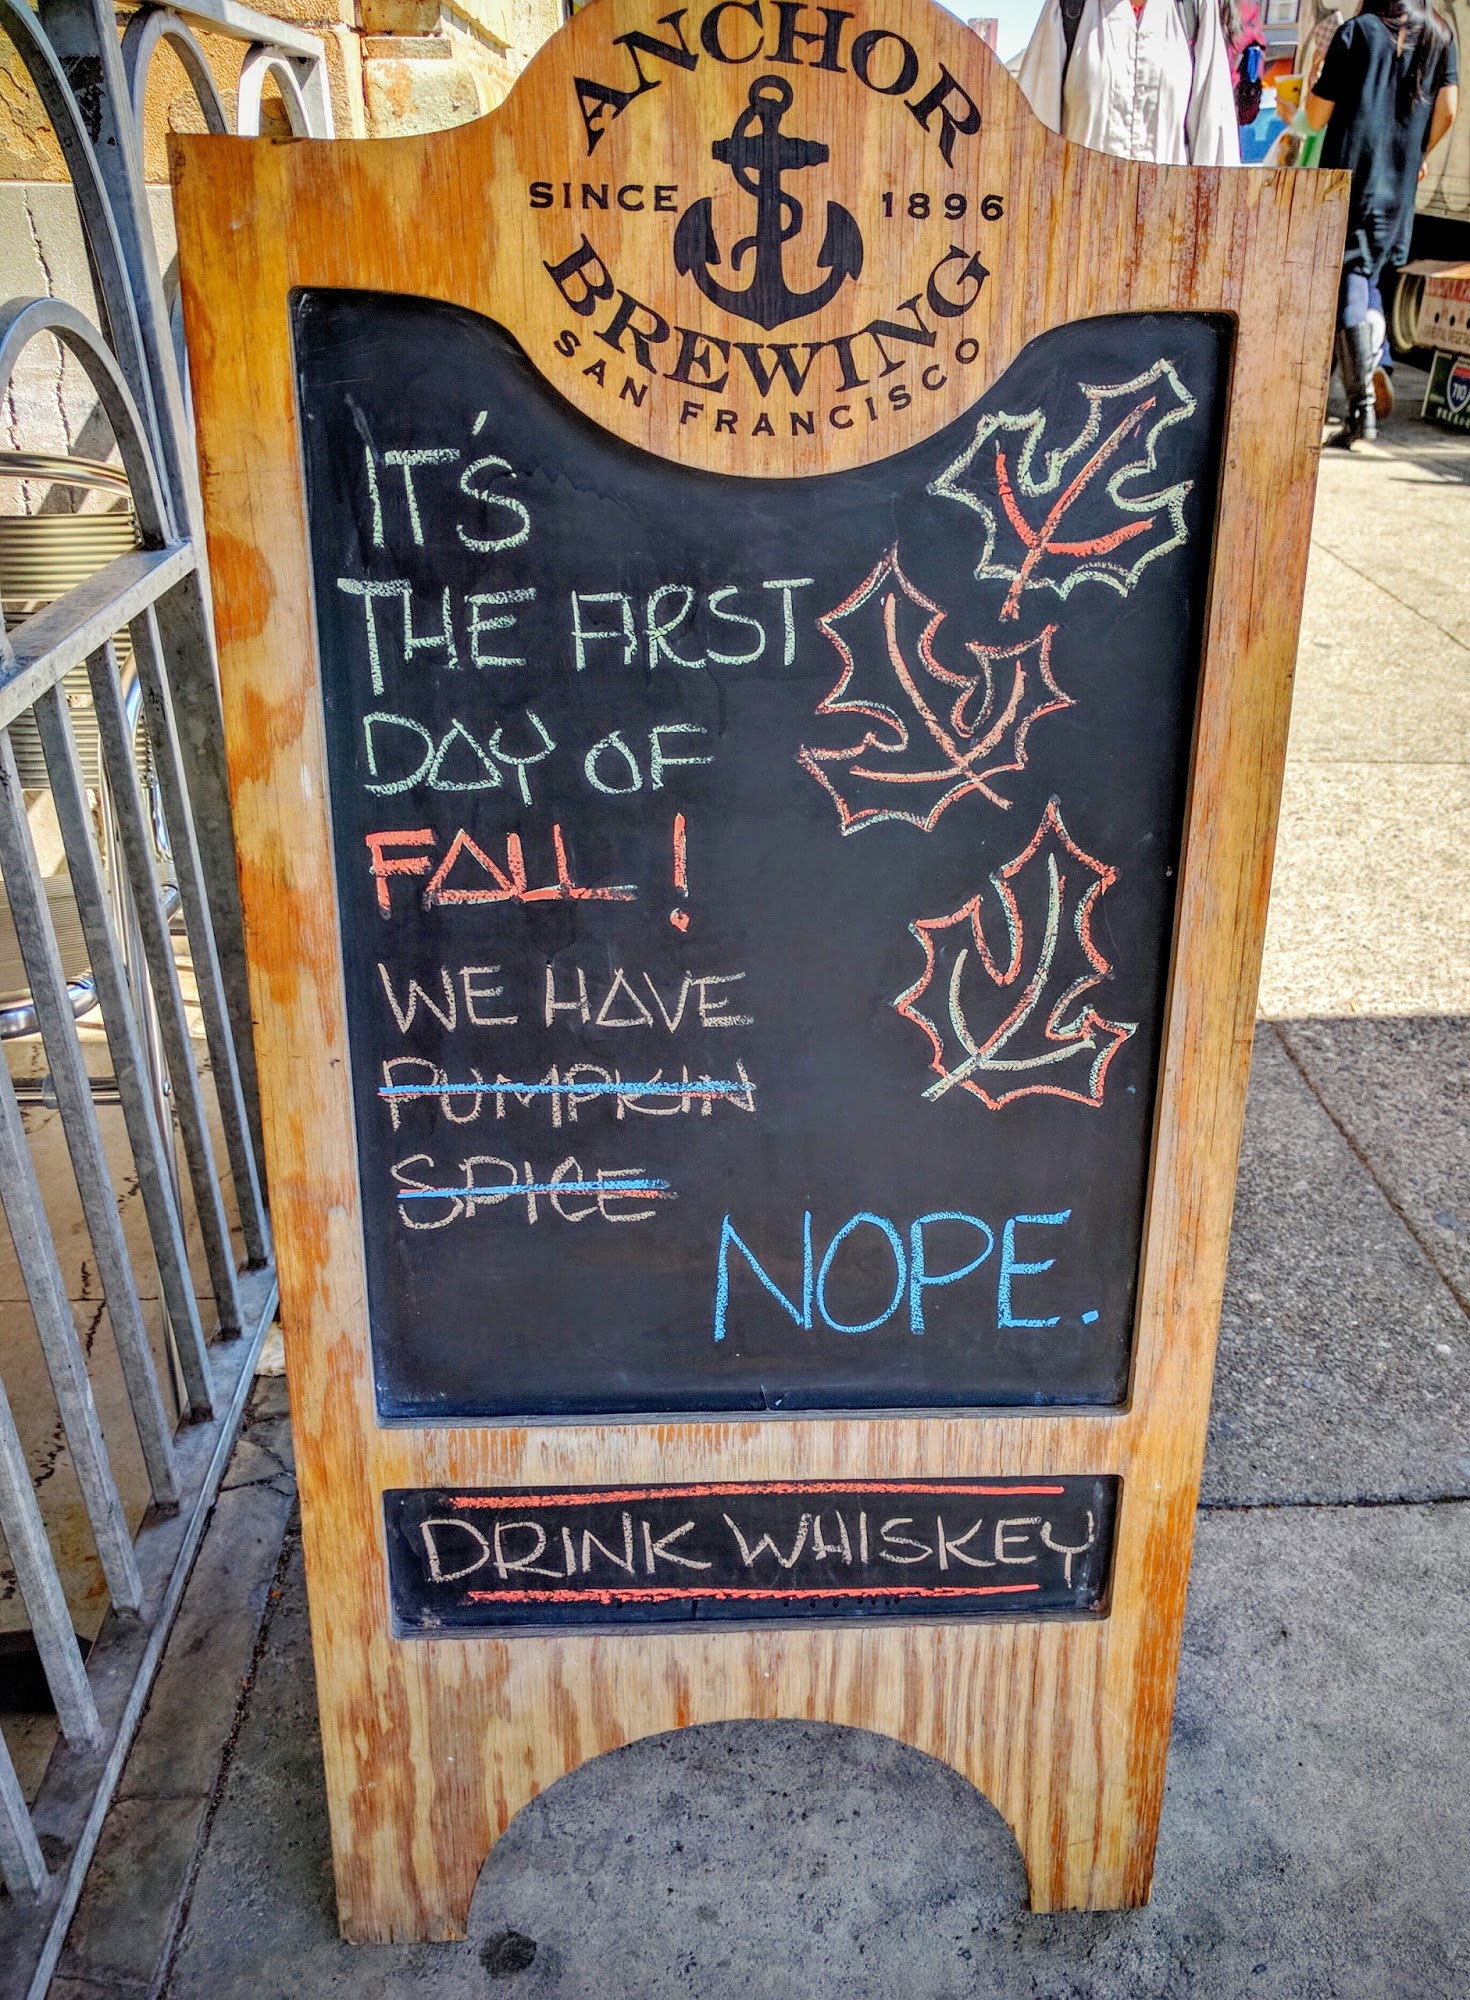 ANCHOR
SINCE 1896
BREWING
SAN FRANCISCO
IT'S
THE FIRST
DAY OF
FALL!
WE HAVE
PUMPKIN
SPICE
NOPE.
DRINK WHISKEY